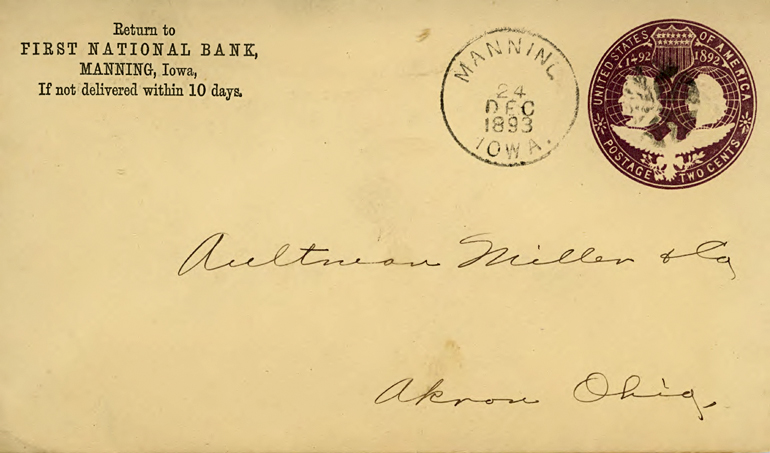 Return to
FIRST NATIONAL BANK,
MANNING, Iowa,
If not delivered within 10 days.
MANNING
24
DEC
1893
IOWA.
UNITED STATES OF AMERICA
1492 1892
POSTAGE TWO CENTS
Aultman Miller & Co
Akron Ohio,